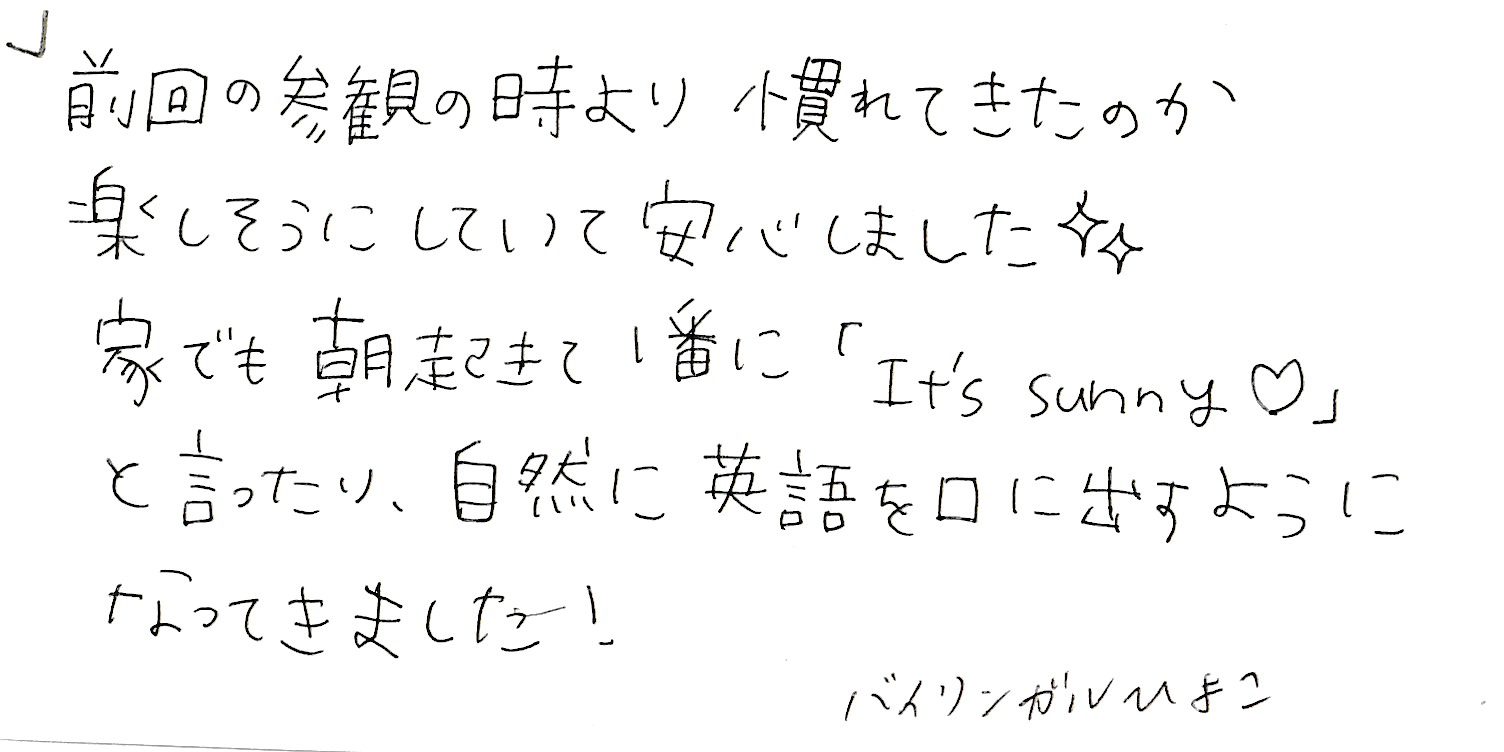 前回の参観の時より慣れてきたのか
楽しそうにしていて安心しました✨
家でも朝起きて1番に「It's sunny♡」
と言ったり、自然に英語を口に出すように
なってきました!
バイリンガルひよこ